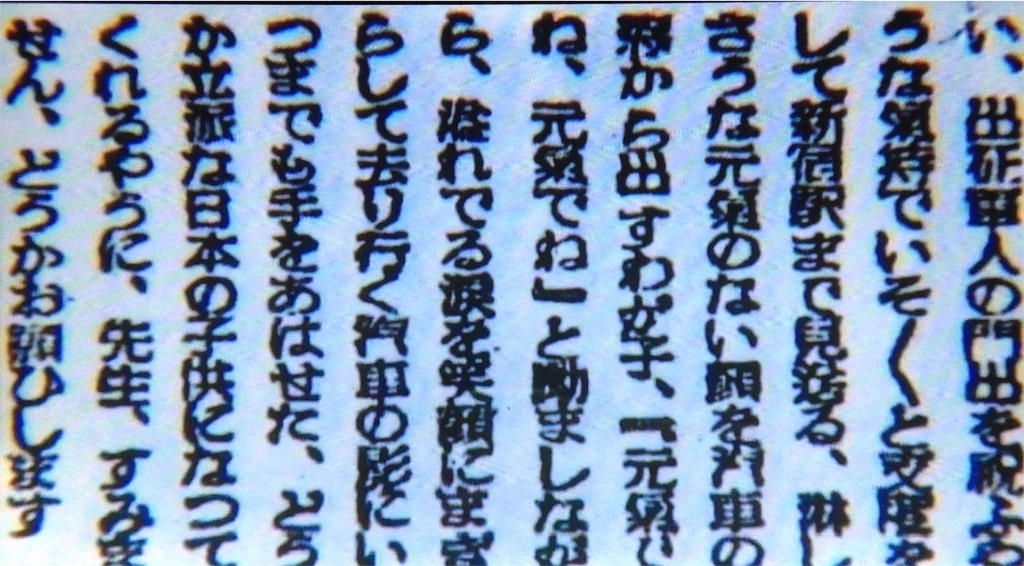 い、出征軍人の門出を祝ふや
うな気持でいそ〱と支度を
して新宿駅まで見送る、淋し
さうな元気のない顔を汽車の
窓から出すわが子、「元気で
ね、元気でね」と励ましなが
ら、溢れでる涙を笑顔にまぎ
らして去り行く汽車の影にい
つまでも手をあはせた、どう
か立派な日本の子供になつて
くれるやうに、先生、すみま
せん、どうかお願ひします